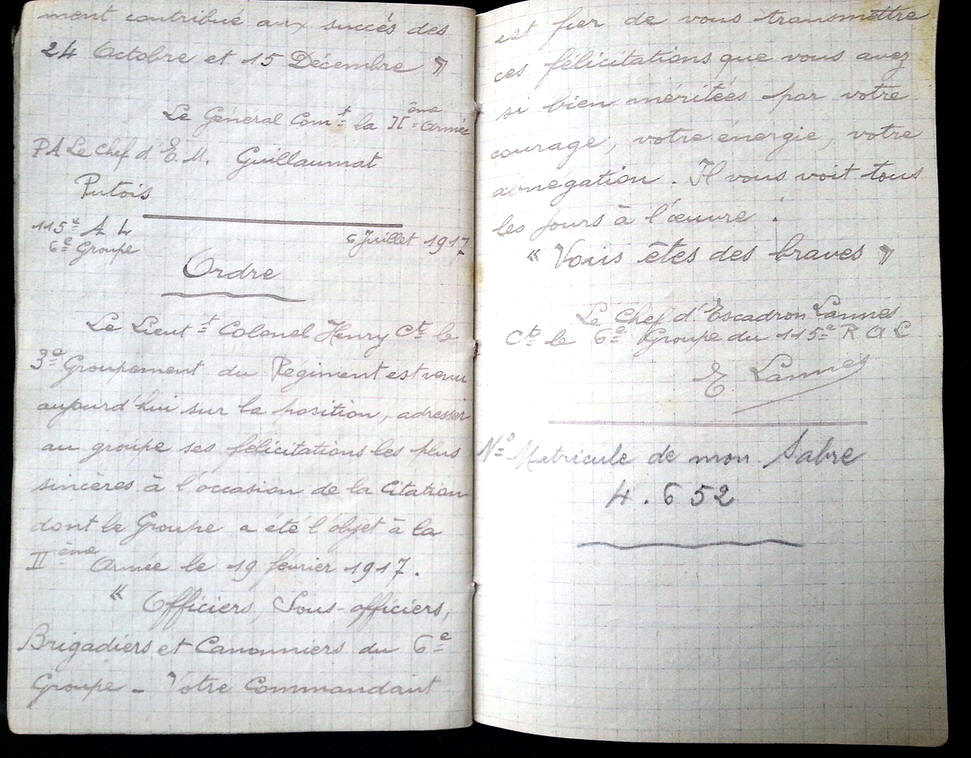 ment contribué aux succés des
24 Octobre et 15 Décembre »
Le Général Com.t la II ème Armée
PA Le Chef d'E. M. Guillaumat
Putois
115e A L
6e Groupe
6 Juillet 1917
Ordre
Le Lieut t Colonel Henry Ct le
3e Groupement du Régiment est venu
aujourd'hui sur la position, adresser
au groupe ses félicitations les plus
sincères à l'occasion de la Citation
dont le Groupe a été l'objet à la
II ème Armée le 19 février 1917.
« Officiers, Sous-officiers,
Brigadiers et Canonniers du 6e
Groupe - Votre Commandant
est fier de vous transmettre
ces félicitations que vous avez
si bien méritées par votre
courage, votre énergie, votre
abnégation. Il vous voit tous
les jours à l'œuvre.
« Vous êtes des braves »
Le Chef d'Escadron Lannes
Ct le 6e Groupe du 115e R A L
E. Lannes
No Matricule de mon Sabre
4.652